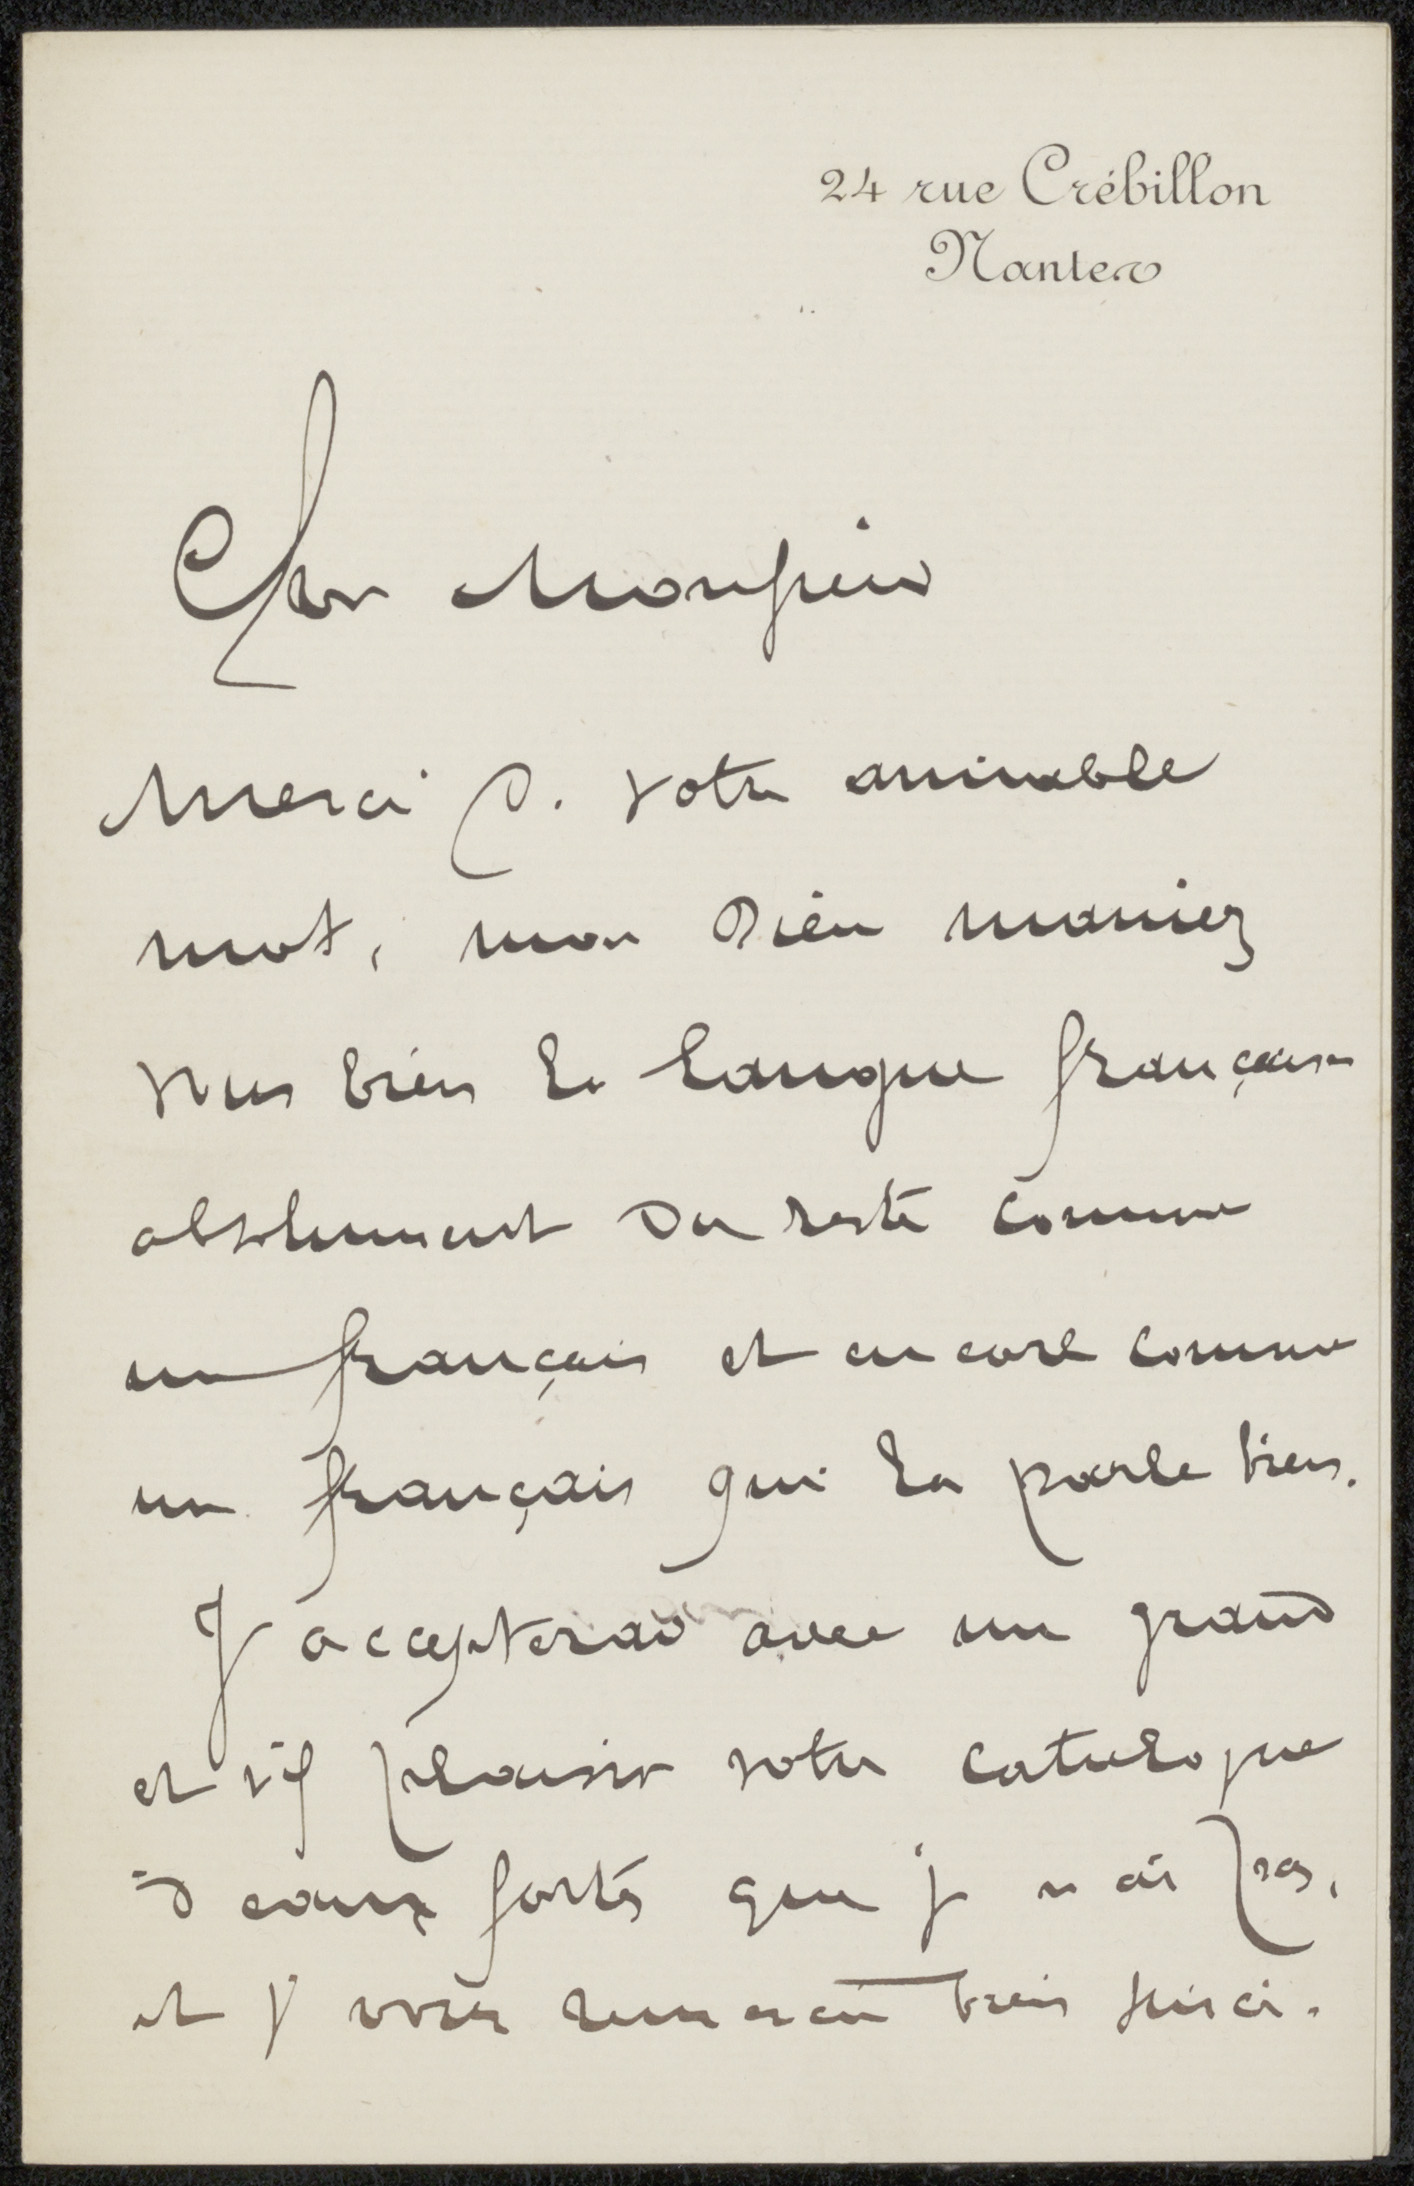 24 rue Crébillon
Nantes
Cher Monsieur
Merci p. votre aimable
mot, mon Dieu maniez
vous bien la langue française
absolument du reste comme
un français et encore comme
un français qui la parle bien.
J'accepterai avec un grand
et vif plaisir votre catalogue
d'eaux fortes que je n'ai pas,
et j vous remercie bien sinc